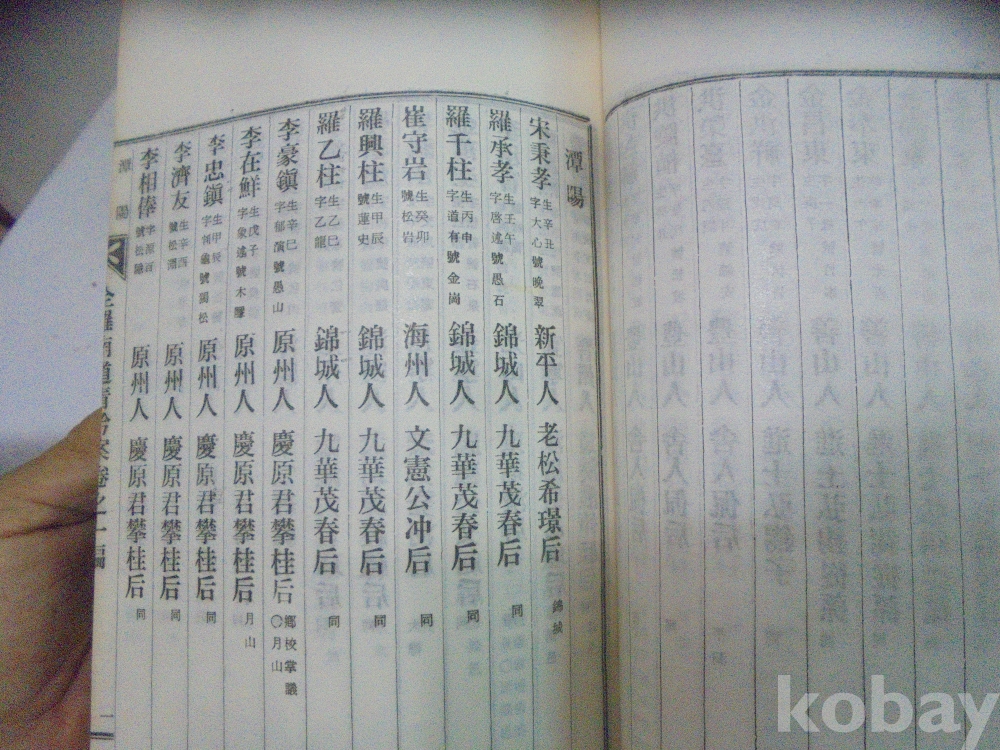 潭陽
宋秉孝 生辛丑 字大心號晩翠 新平人 老松希璟后 錦城
羅承孝 生壬午 字啓述號愚石 錦城人 九華茂春后 同
羅千柱 生丙申 字道有號金崗 錦城人 九華茂春后 同
崔守岩 生癸卯 號松岩 海州人 文憲公冲后 同
羅興柱 生甲辰 號蓮史 錦城人 九華茂春后 同
羅乙柱 生乙巳 字乙龍 錦城人 九華茂春后 同
李豪鎭 生辛巳 字郁演號愚山 原州人 慶原君攀桂后 鄕校掌議 〇月山
李在鮮 生戊子 字象述號木 原州人 慶原君攀桂后 月山
李忠鎭 生甲辰 號獨松 原州人 慶原君攀桂后 同
李濟友 生辛酉 號松 原州人 慶原君攀桂后 同
李相俸 號松 原州人 慶原君攀桂后 同
潭陽 全羅南道靑衿案卷之 一
kobay